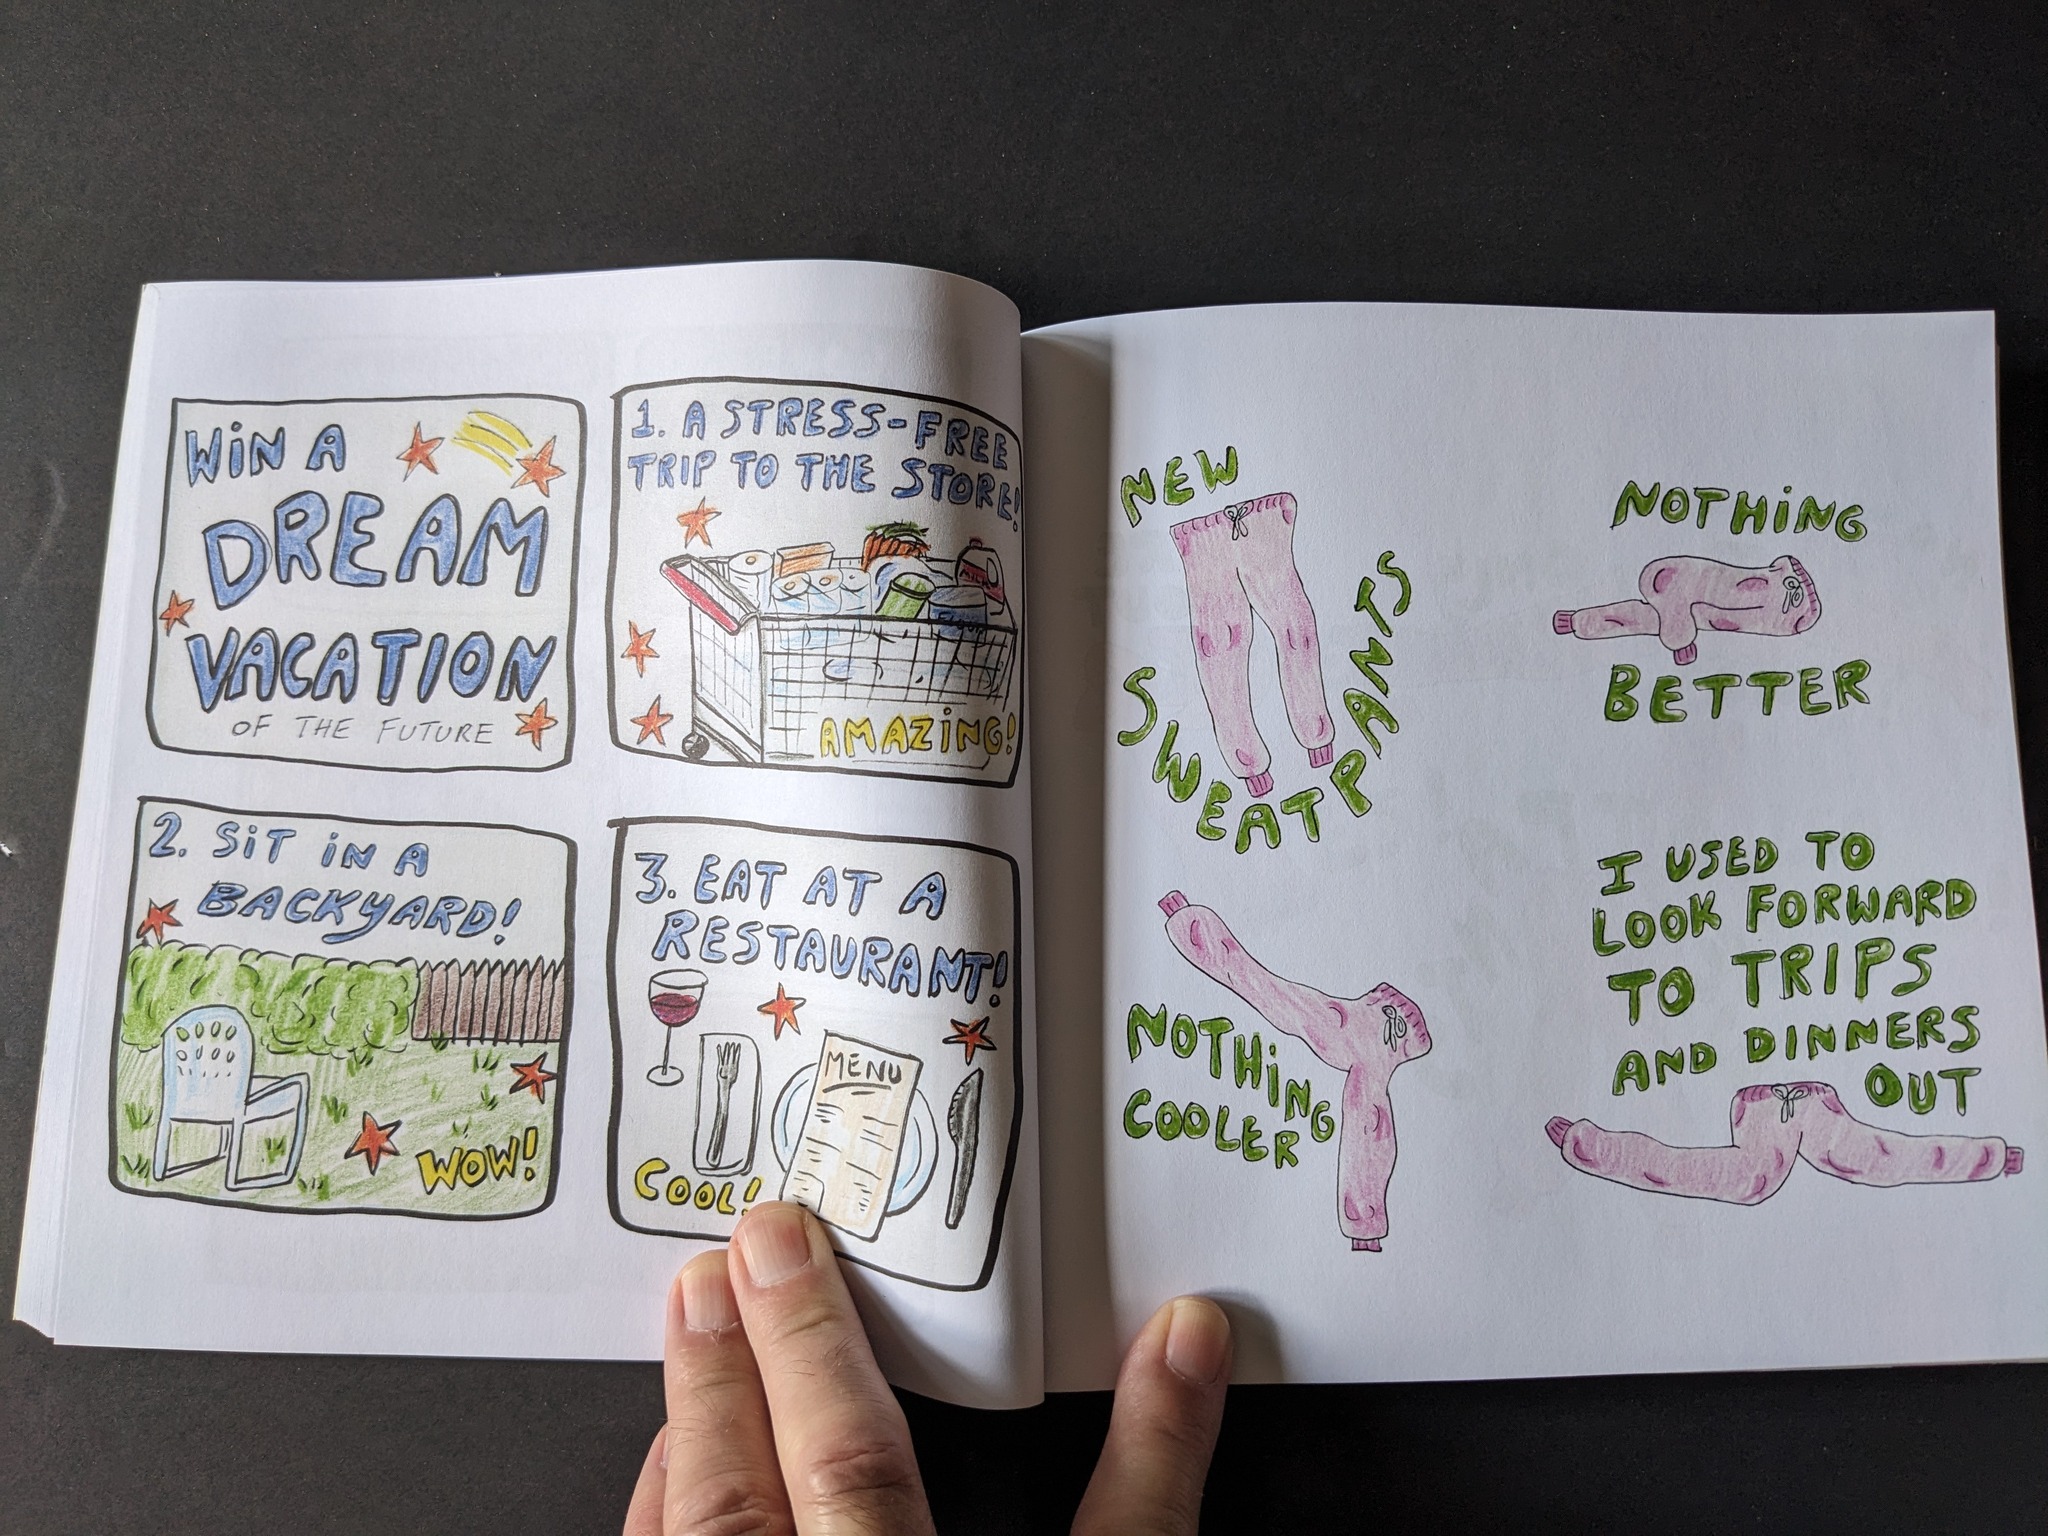 WIN A
DREAM
VACATION
OF THE FUTURE
1. A STRESS-FREE
TRIP TO THE STORE!
MILK
FLOUR
AMAZING!
2. SIT IN A
BACKYARD!
WOW!
3. EAT AT A
RESTAURANT!
MENU
COOL!
NEW
SWEATPANTS
NOTHING
BETTER
NOTHING
COOLER
I USED TO
LOOK FORWARD
TO TRIPS
AND DINNERS
OUT